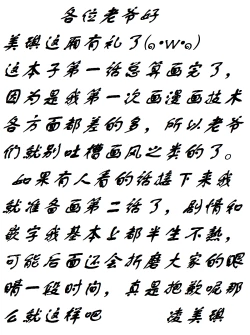 各位老爷好
美琪这厢有礼了(๑•w•๑)
这本子第一话总算画完了，
因为是我第一次画漫画技术
各方面都差的多，所以老爷
们就别吐槽画风之类的了。
如果有人看的话接下来我
就准备画第二话了，剧情和
嵌字我基本上都半生不熟，
可能后面还会折磨大家的眼
睛一段时间，真是抱歉呢那
么就这样吧 凌美琪